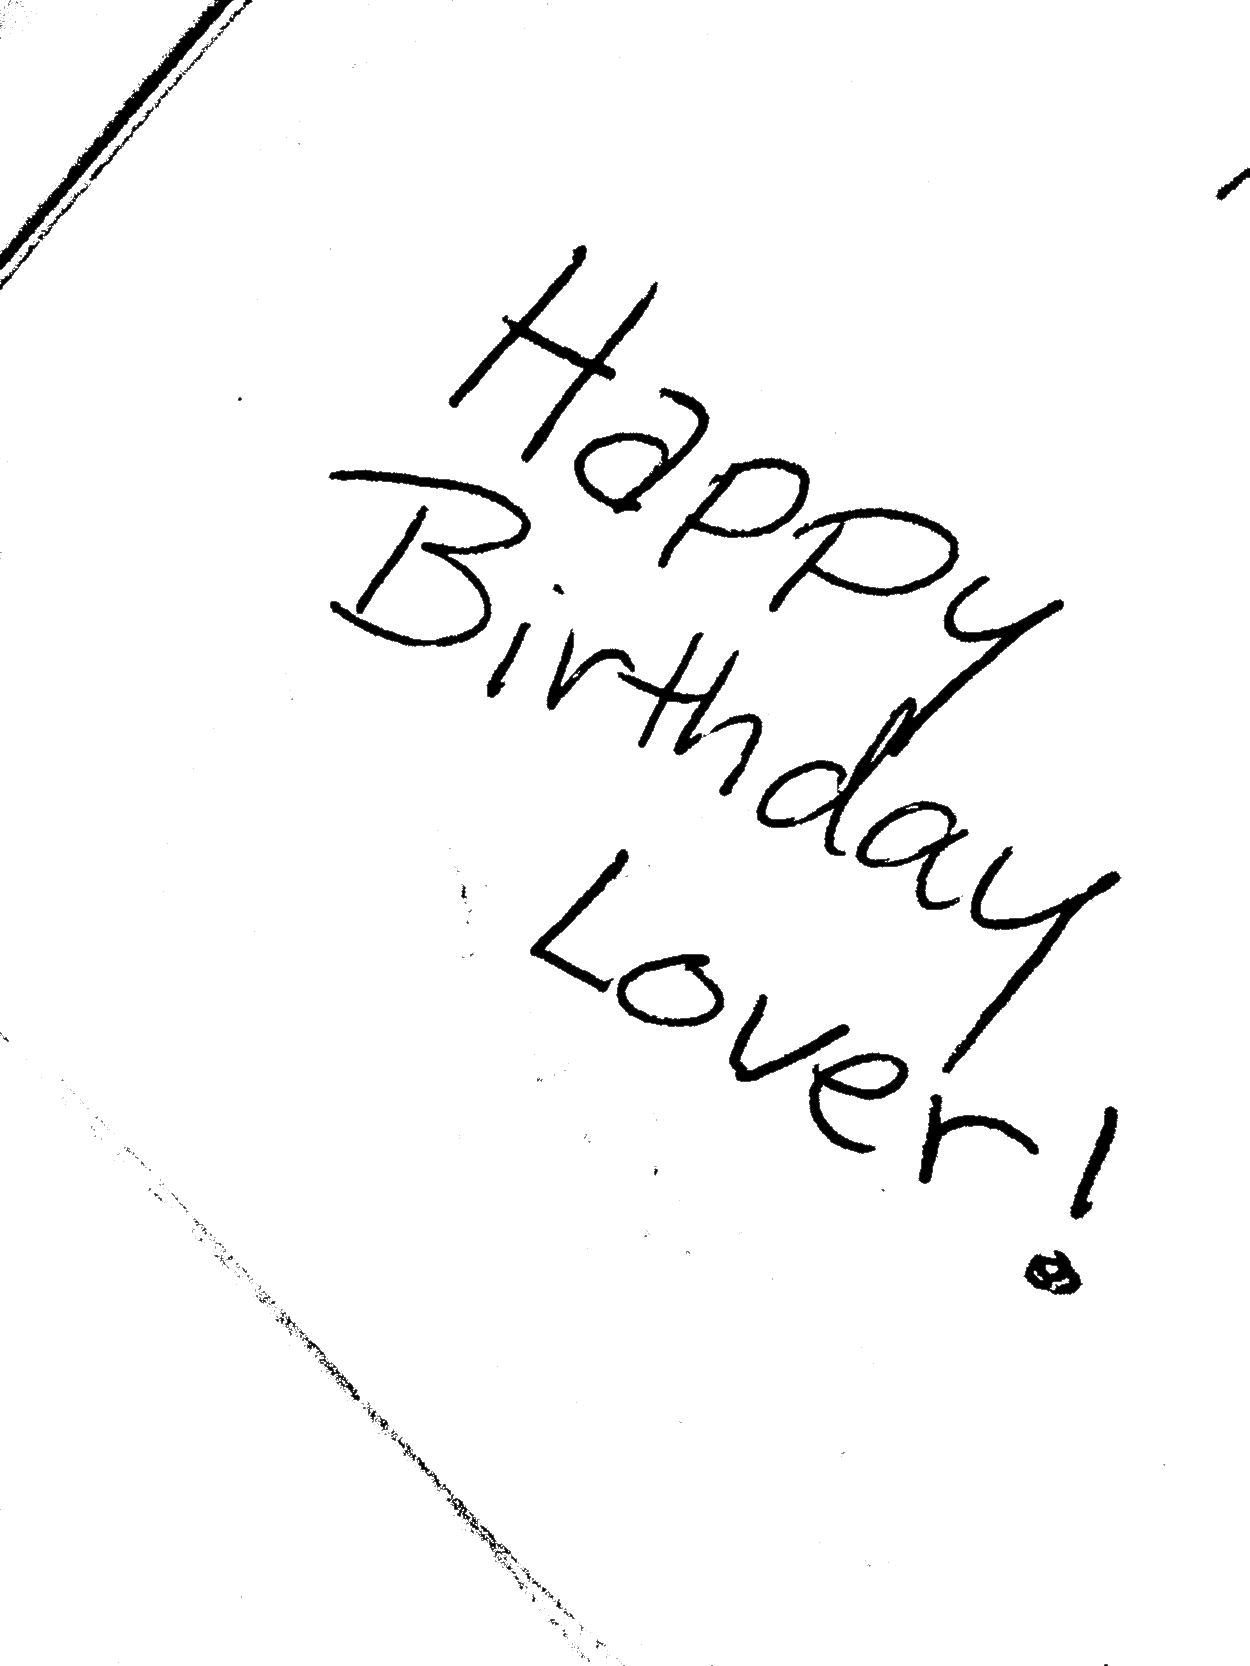 Happy
Birthday
Lover!